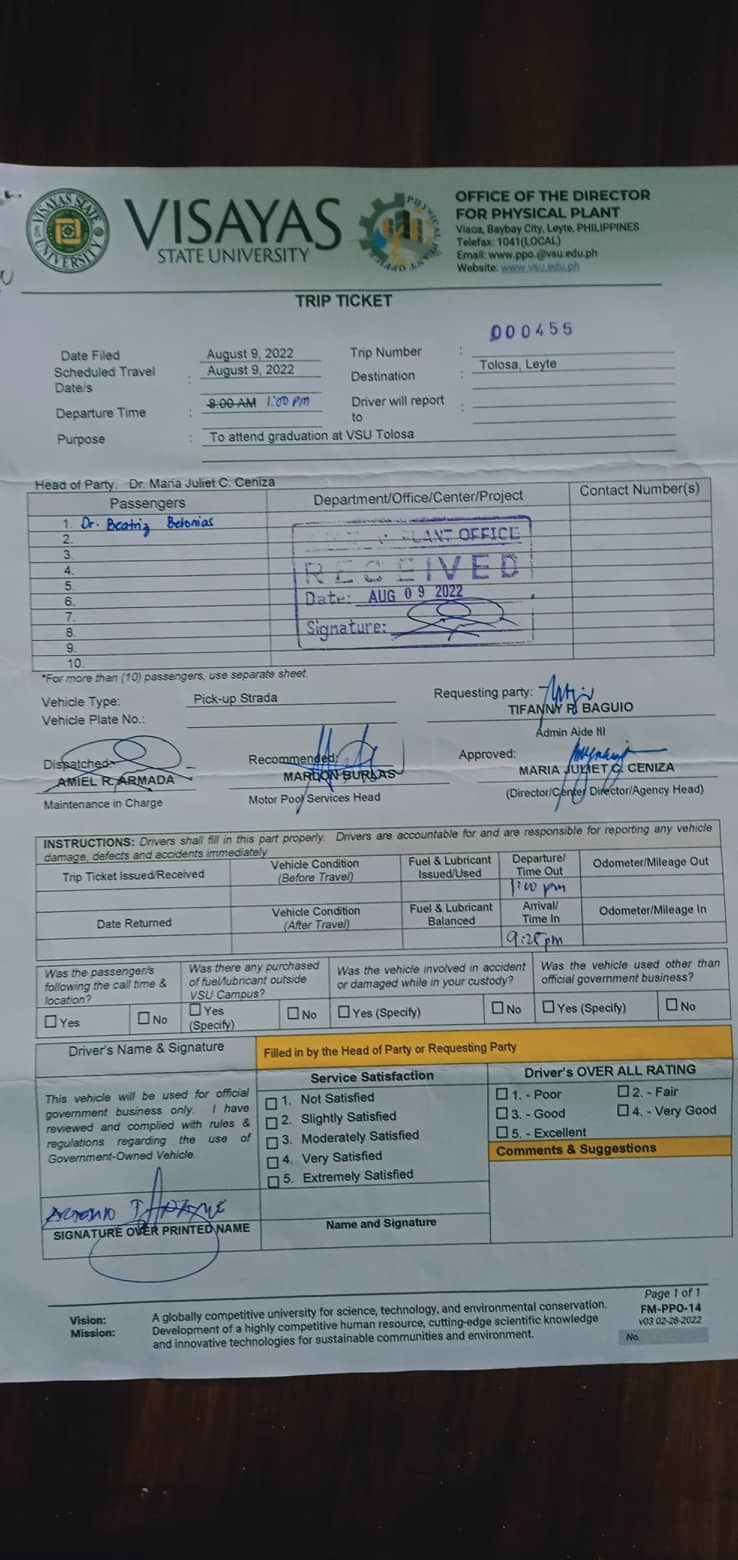 VISAYAS
STATE UNIVERSITY
VISAYAS STATE UNIVERSITY
OFFICE OF THE DIRECTOR
FOR PHYSICAL PLANT
Visca, Baybay City, Leyte, PHILIPPINES
Telefax: 1041(LOCAL)
Email: www.ppo.@vsu.edu.ph
Website: www.vsu.edu.ph
TRIP TICKET
000455
Date Filed August 9, 2022 Trip Number :
Scheduled Travel Date/s : August 9, 2022 Destination : Tolosa, Leyte
Departure Time : 8:00 AM 1:00 PM Driver will report to :
Purpose : To attend graduation at VSU Tolosa
Head of Party: Dr. Maria Juliet C. Ceniza
Passengers Department/Office/Center/Project Contact Number(s)
1. Dr. Beatriz Belonias
2.
3.
4.
5.
6.
7.
8.
9.
10.
PLANT OFFICE
RECEIVED
Date: AUG 09 2022
Signature:
*For more than (10) passengers, use separate sheet.
Vehicle Type: Pick-up Strada
Vehicle Plate No.:
Requesting party:
TIFANNY R. BAGUIO
Admin Aide III
Dispatched:
AMIEL R. ARMADA
Maintenance in Charge
Recommended:
MARLON BURLAS
Motor Pool Services Head
Approved:
MARIA JULIET C. CENIZA
(Director/Center Director/Agency Head)
INSTRUCTIONS: Drivers shall fill in this part properly. Drivers are accountable for and are responsible for reporting any vehicle
damage, defects and accidents immediately
Trip Ticket Issued/Received Vehicle Condition (Before Travel) Fuel & Lubricant Issued/Used Departure/ Time Out Odometer/Mileage Out
1:00 pm
Date Returned Vehicle Condition (After Travel) Fuel & Lubricant Balanced Arrival/ Time In Odometer/Mileage In
Was the passenger/s
following the call time &
location?
Yes No
Was there any purchased
of fuel/lubricant outside
VSU Campus?
Yes (Specify) No
Was the vehicle involved in accident
or damaged while in your custody?
Yes (Specify) No
Was the vehicle used other than
official government business?
Yes (Specify) No
Driver's Name & Signature
Filled in by the Head of Party or Requesting Party
This vehicle will be used for official
government business only. I have
reviewed and complied with rules &
regulations regarding the use of
Government-Owned Vehicle.
SIGNATURE OVER PRINTED NAME
Service Satisfaction
1. Not Satisfied
2. Slightly Satisfied
3. Moderately Satisfied
4. Very Satisfied
5. Extremely Satisfied
Name and Signature
Driver's OVER ALL RATING
1. - Poor 2. - Fair
3. - Good 4. - Very Good
5. - Excellent
Comments & Suggestions
Vision: A globally competitive university for science, technology, and environmental conservation.
Mission: Development of a highly competitive human resource, cutting-edge scientific knowledge
and innovative technologies for sustainable communities and environment.
Page 1 of 1
FM-PPO-14
v03 02-28-2022
No.